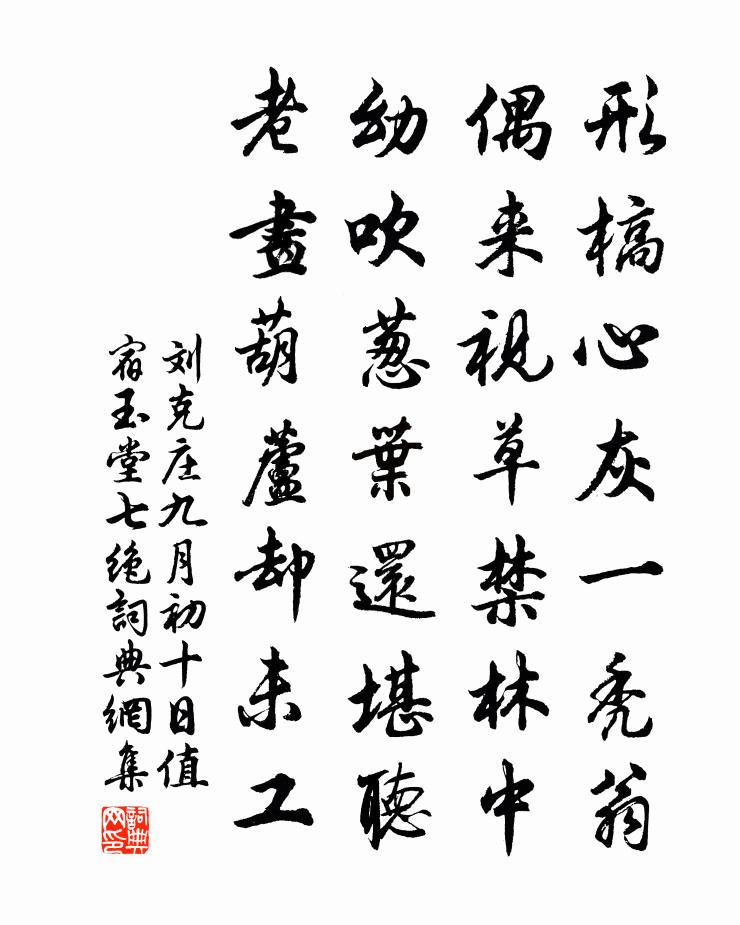 形槁心灰一秃翁
偶来視草禁林中
幼吹葱葉還堪聽
老畫葫蘆却未工
刘克庄九月初十日值
宿玉堂七绝詞典網集
詞典
网印